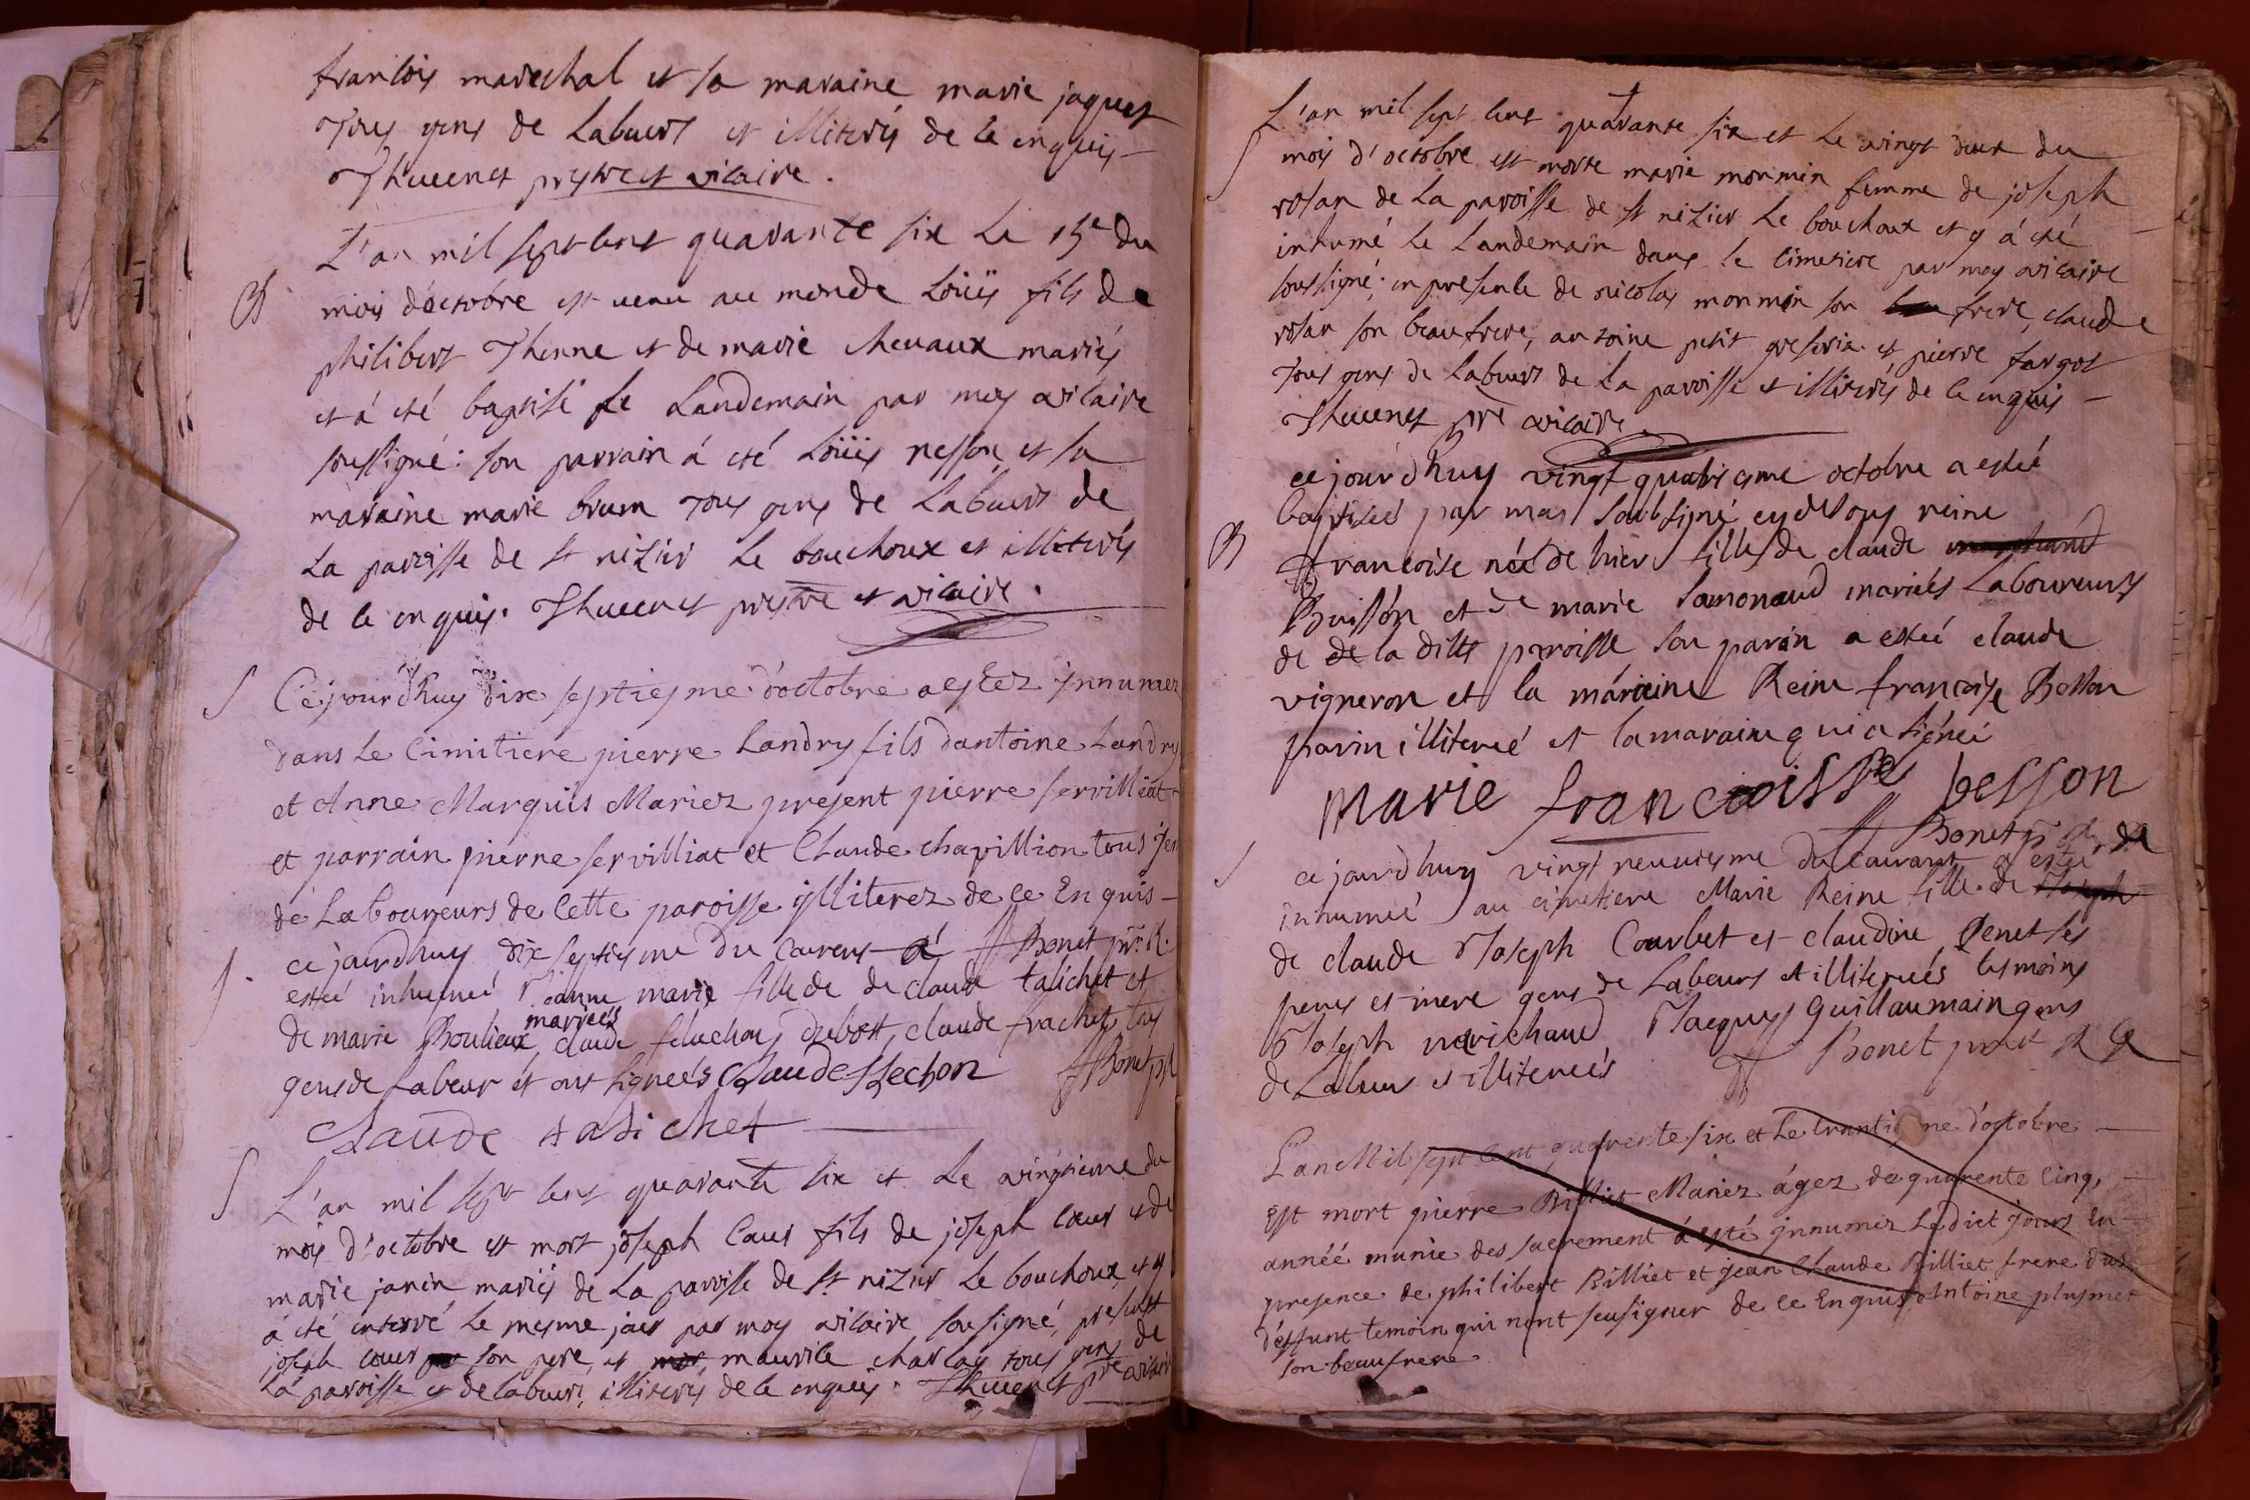 francois marechal et sa maraine marie jaquet
tous gens de Labeurs et illiterés de ce enquis
Theuenet prestre et vicaire.
L'an mil sept cent quarante six Le 15e du
B mois d'octobre est venu au monde Loüis fils de
philibert Thenne et de marie chevaux mariés
et á eté baptisé Le Landemain par moy vicaire
sousigné: son parrain á eté Loüis nesson et sa
maraine marie brum tous gens de Labeurs de
La paroisse de st nizier Le bouchoux et illiterés
de ce enquis. Theuenet prestre et vicaire.
S Cejourd'huy dix septiesme d'octobre aestez Jnnumez
dans Le Cimitiere pierre Landry fils dantoine Landry
et Anne Marquis Mariez present pierre servilliat
et parrain pierre servilliat et Claude chapillion tous
de Laboureurs de Cette paroisse jlliterez de ce Enquis
S ce jourdhuy dix septiesme du courens á Bonet
esteé inhumeé Jeanne marie fille de de claude talichet et
de marie Boulieux mariees claude fluchon dubost, claude frachet tous
gens de Labeur et ont signeés Claude flechon Bonet
Claude tadichet
S L'an mil sept cent quarante six et Le vingtieme du
mois d'octobre est mort joseph Cour fils de joseph cour et de
marie janin mariés de La paroisse de St nizier Le bouchoux et y
á eté enterré Le mesme jour par moy vicaire sousigné, present
joseph cour son pere, et maurice charlay tous gens de
La paroisse et de labeurs, illiterés de ce enquis. Theuenet pre vicaire
L'an mil sept cent quarante six et Le vingt deux du
S mois d'octobre est morte marie monmin femme de joseph
rosan de La paroisse de st nizier Le bouchoux et y á eté
inhumé Le Landemain dans le cimetiere par moy vicaire
sousigné; en presence de nicolas monmin son frere, claude
rosan son beaufrere, antoine petit et pierre fargot
Tous gens de Labeurs de La paroisse et illiterés de ce enquis
Theuenet pre vicaire.
ce jourdhuy vingt quatriesme octobre a esteé
baptiseé par moy soubsigné reine
B francoise neé de hier fille de claude marchand
Buisson et de marie Lamonaud marieés Laboureurs
de de la ditte paroisse son parin a esteé claude
vigneron et la maraine Reine francoise Besson
parin illitereé et la maraine qui a signeé
Marie francoisse besson
Bonet
S ce jourdhuy vingt neuuiesme du courant a esteé
inhumeé au cimetiere Marie Reine fille de Joseph
de claude Joseph Courbet et claudine Penet ses
peres et mere gens de Labeurs et illitereés tesmoins
Joseph Jacques Guillaumain gens
de Labeur et illitereés Bonet
Lan Mil sept Cent quarente six et Le trantiesme d'octobre
Est mort pierre Billiet Mariez ágez de quarente Cinq
année munie des sacrement á esté Jnnumez Ledict jours En
presence de philibert Billiet et jean Claude Billiet frere dudit
déffunt temoin qui nont seusigner de ce Enquis Antoine plumet
son beaufrere